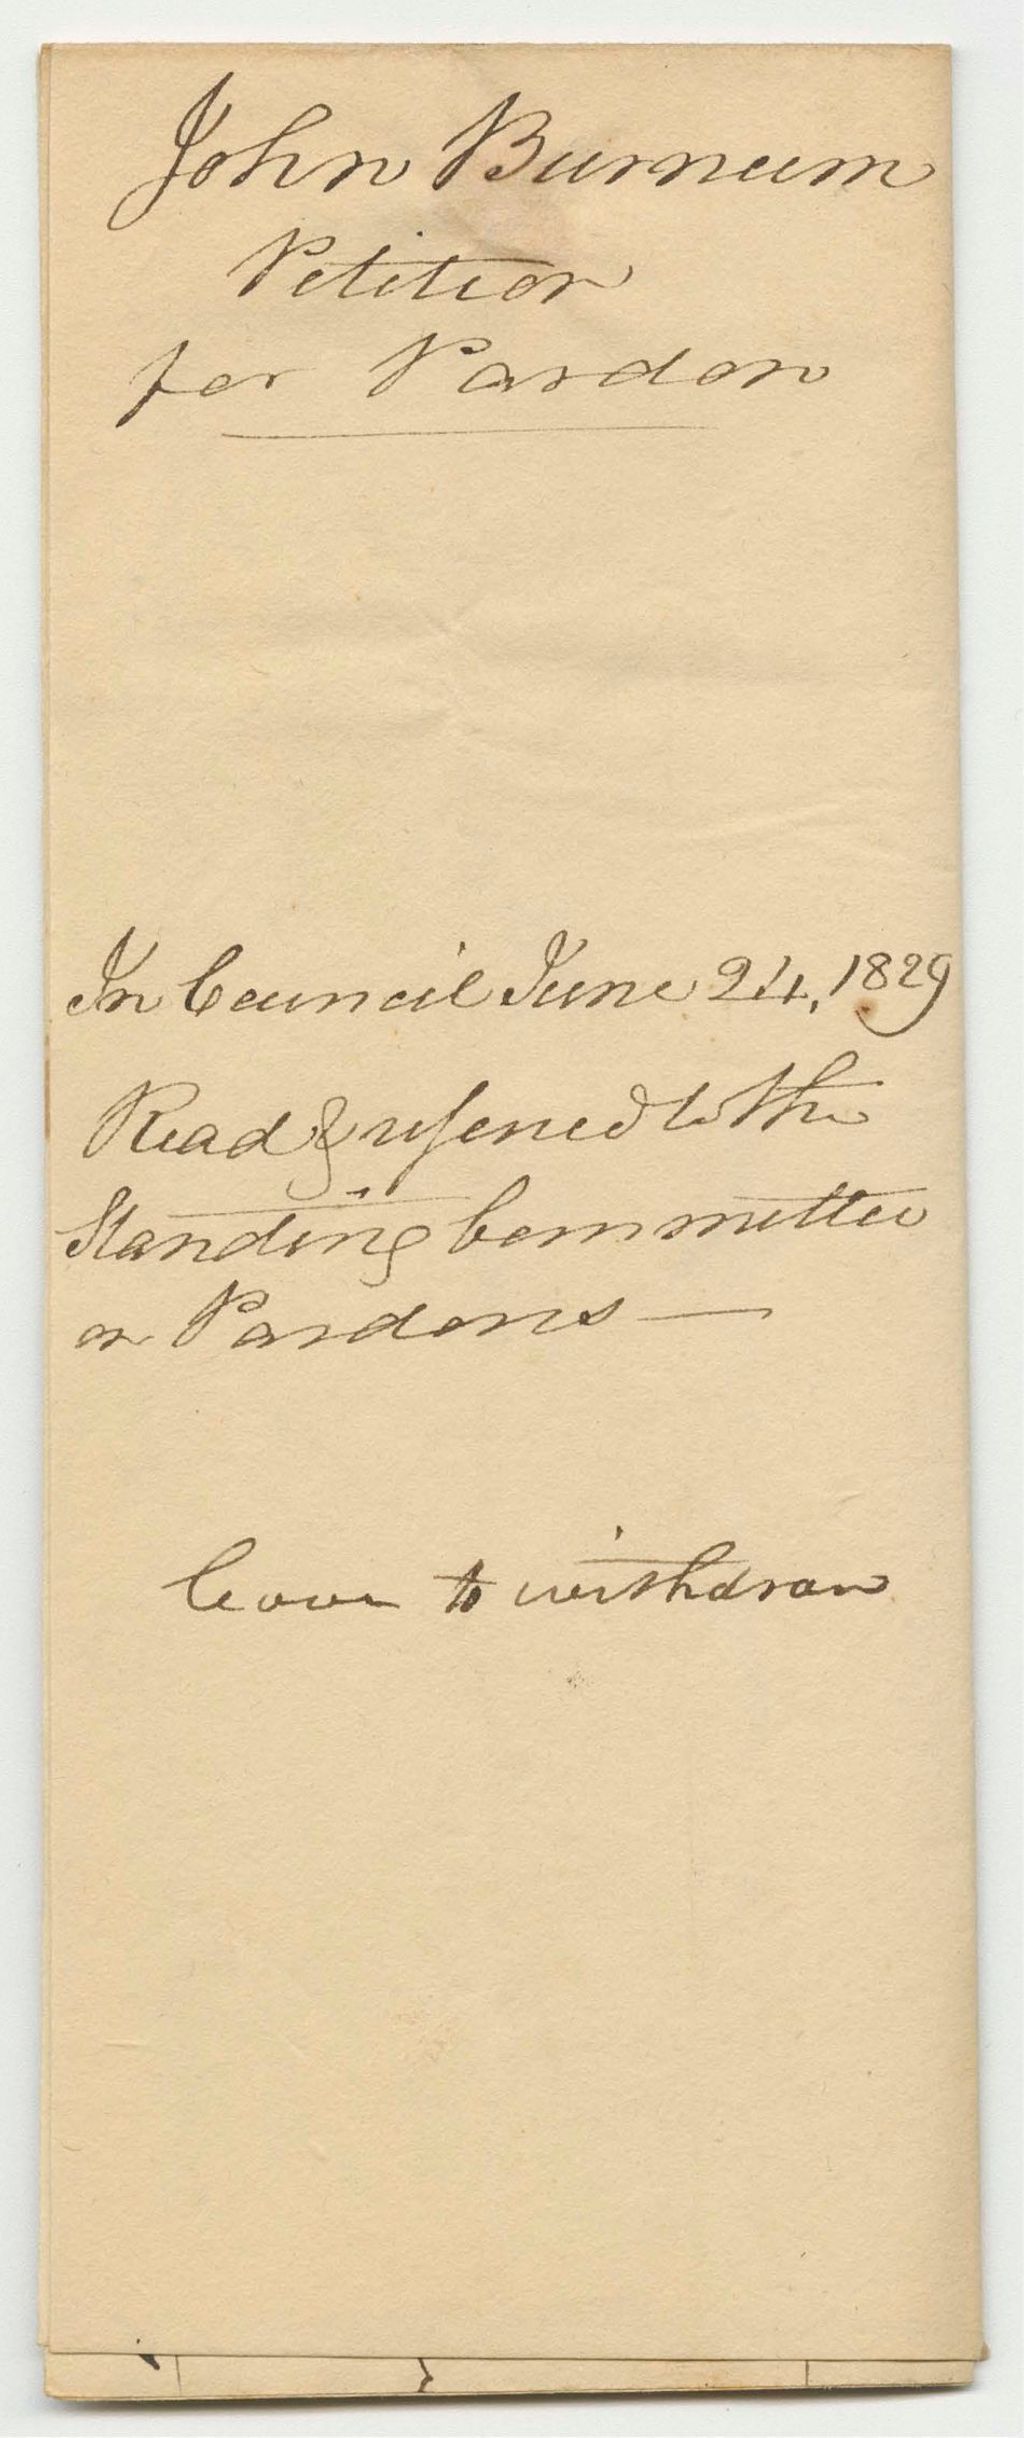 John Burnam
Petition
for Pardon
In Council June 24, 1829
Read & referred to the
Standing Committee
on Pardons —
leave to withdraw